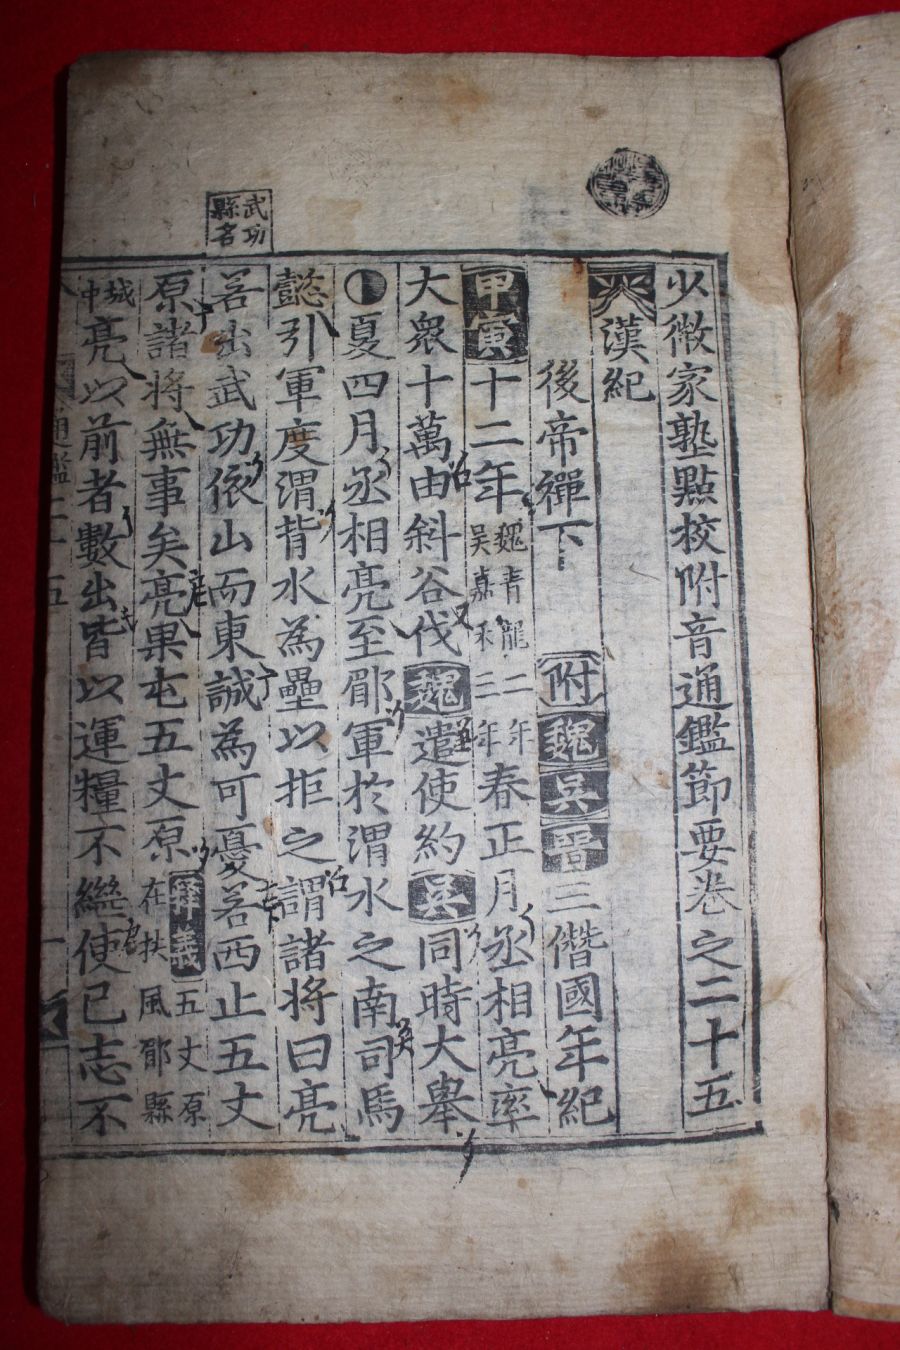 少微家塾點校附音通鑑節要卷之二十五
漢紀
後帝禪下 附魏吳晋三僭國年紀
甲寅十二年魏青龍二年吳嘉禾三年春正月丞相亮率
大衆十萬由斜谷伐魏遣使約吳同時大舉
夏四月丞相亮至郿軍於渭水之南司馬
懿引軍度渭背水為壘以拒之謂諸將曰亮
若出武功依山而東誠為可憂若西止五丈
武功縣名
原諸將無事矣亮果屯五丈原釋義五丈原在扶風郿縣
城中亮以前者數出皆以運糧不繼使己志不
通鑑二十五 一